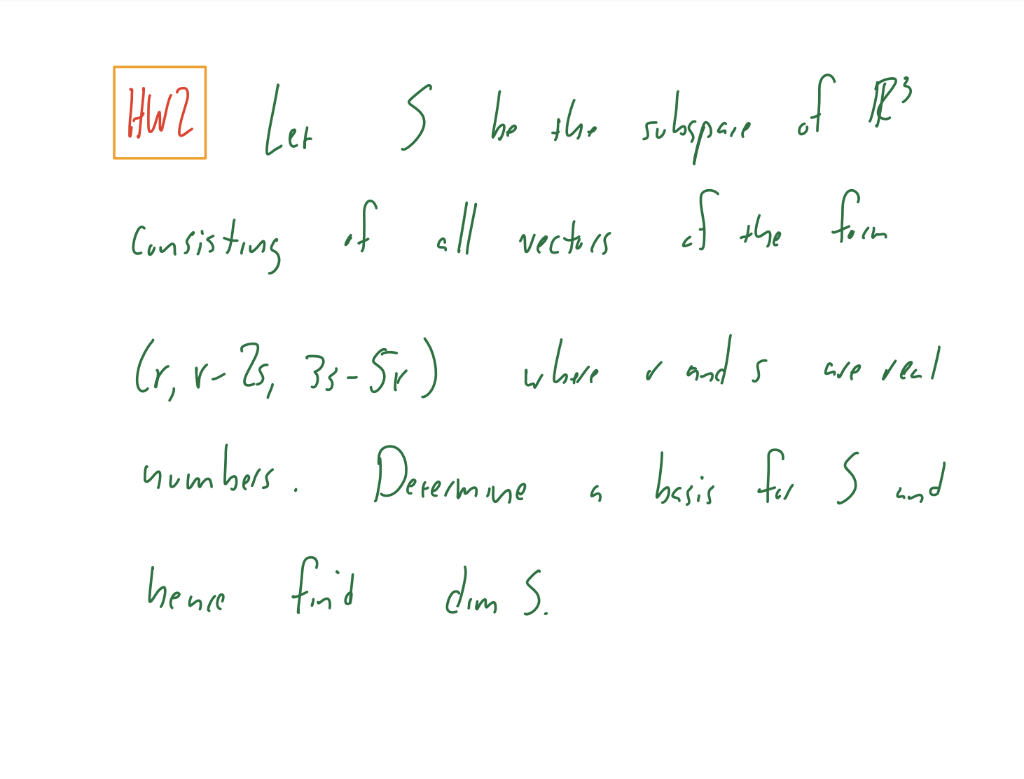 HW2 Let S be the subspace of ℝ³
consisting of all vectors of the form
(r, r-2s, 3s-5r) where r and s are real
numbers. Determine a basis for S and
hence find dim S.